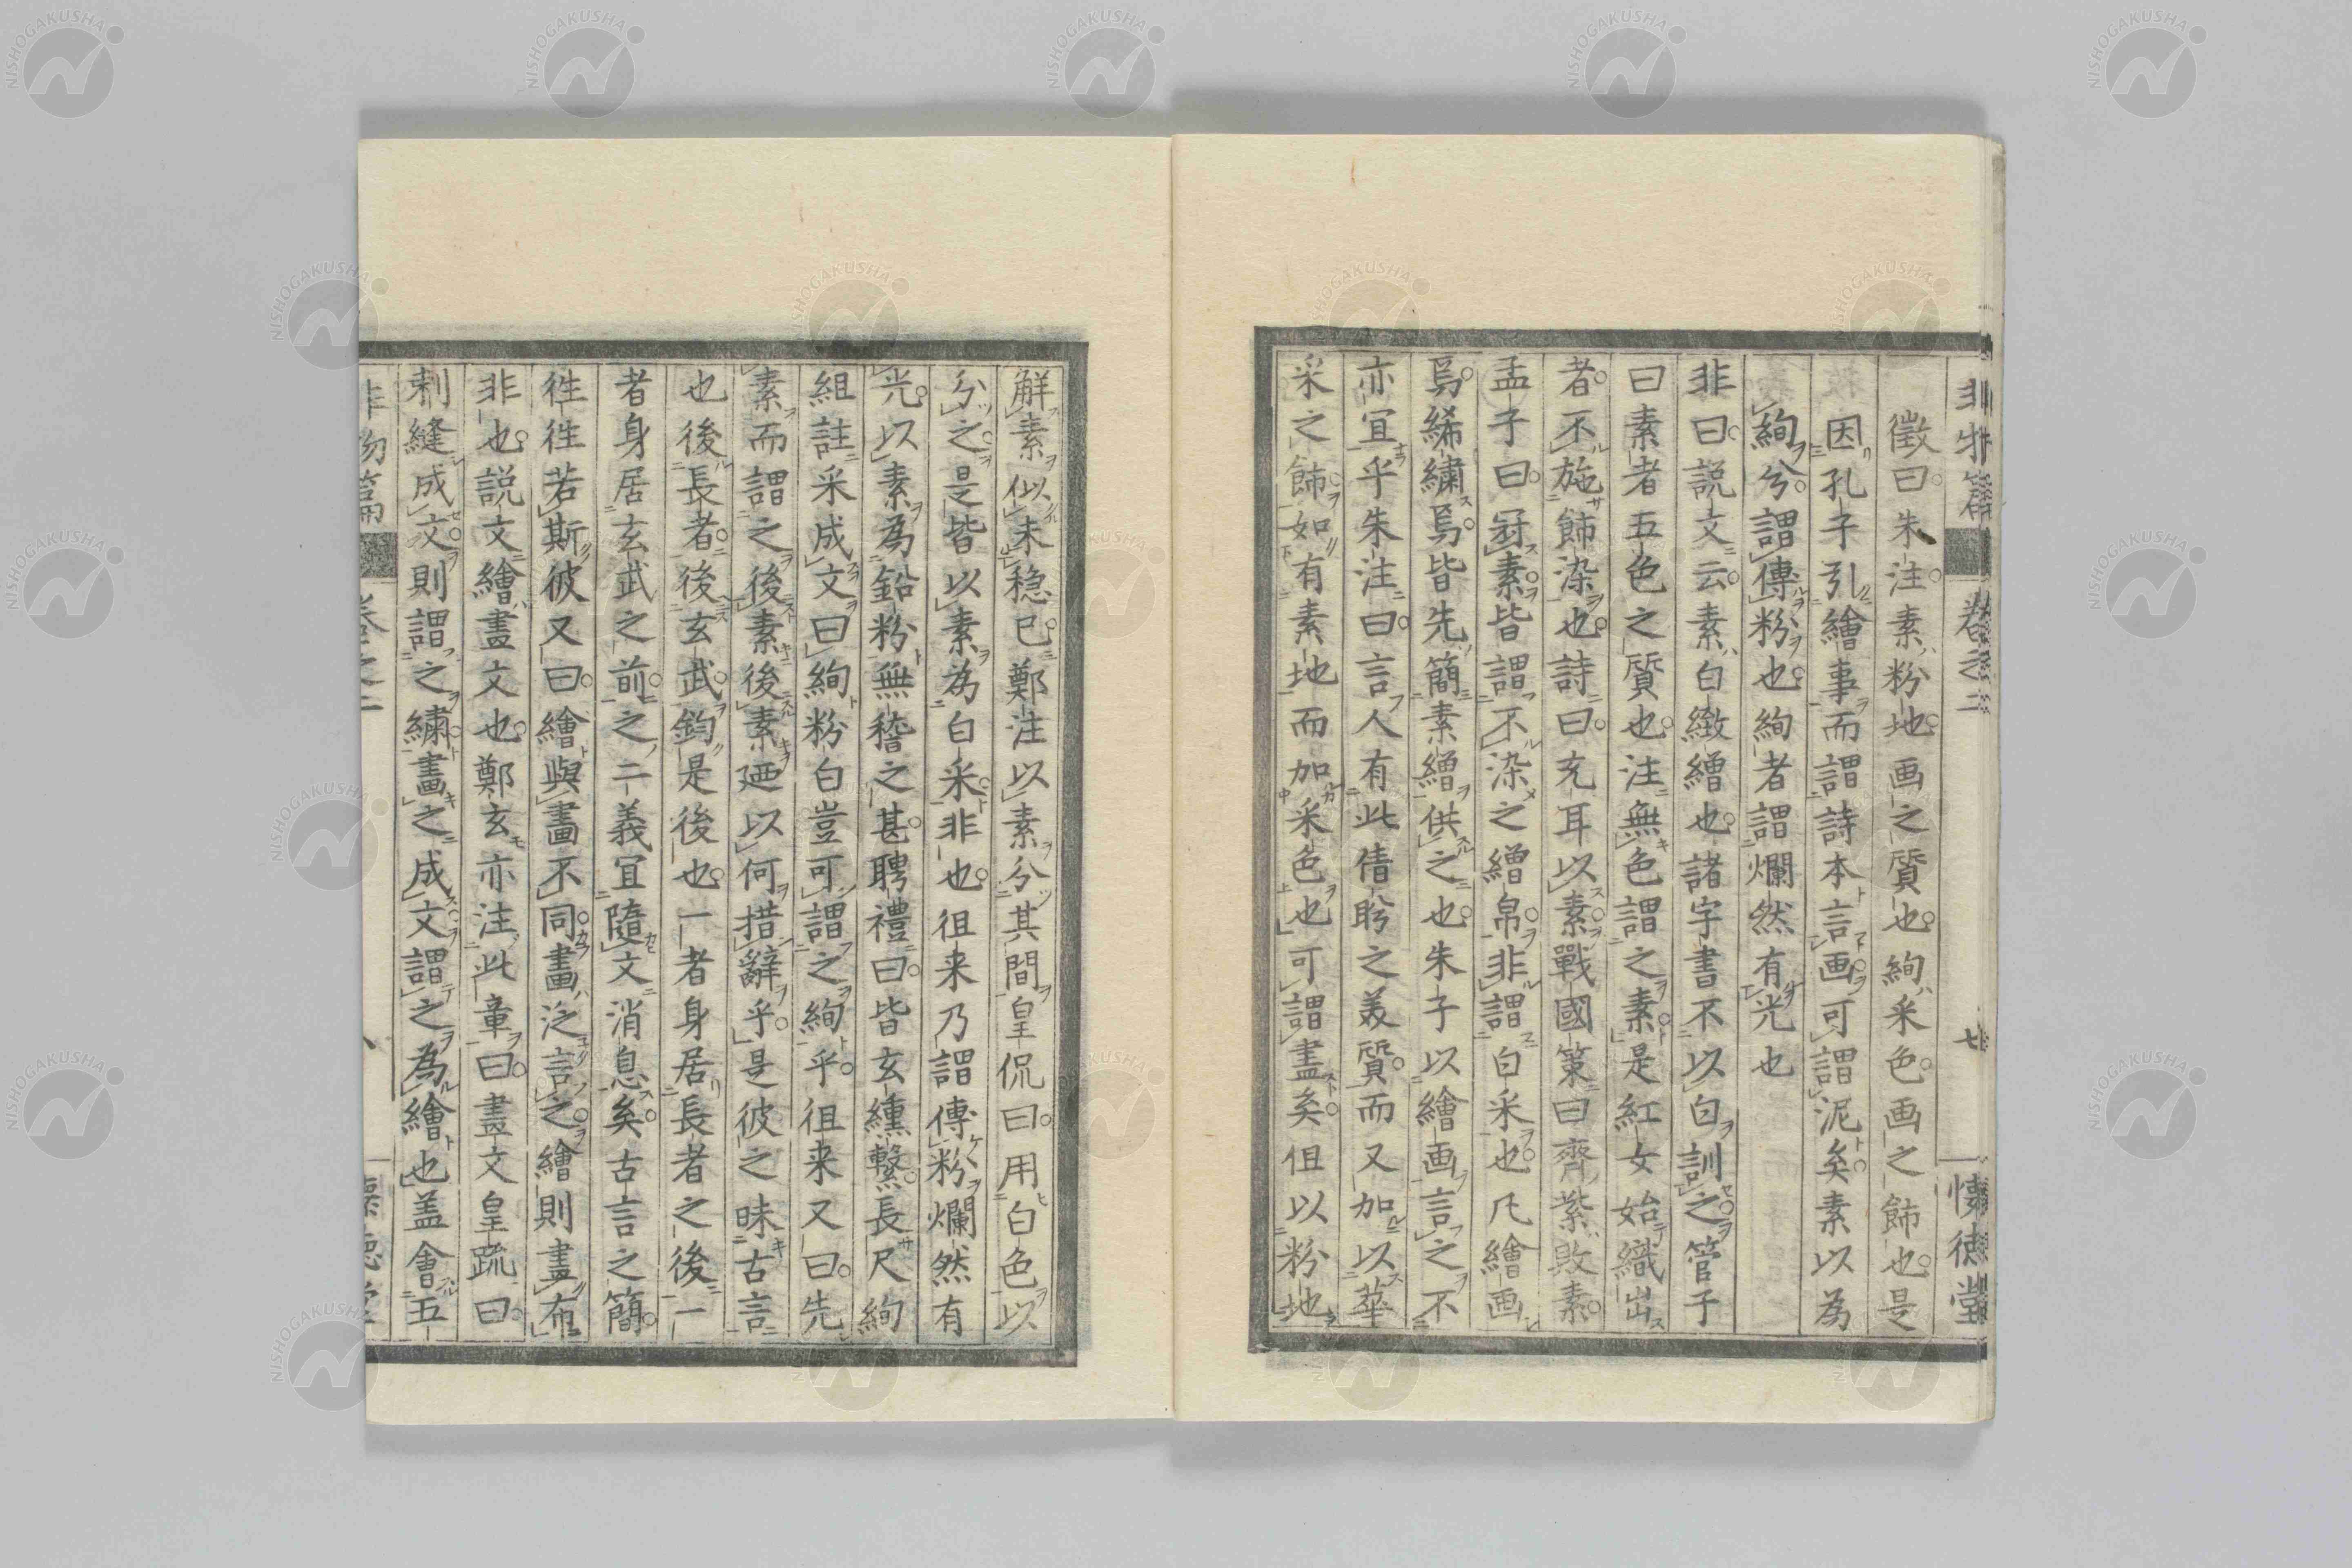 非物篇 卷之二 七 懐徳堂
徵曰朱注素粉地画之質也絢采色画之飾也是
因孔子引繪事而謂詩本言画可謂泥矣素以為
絢兮謂傅粉也絢者謂爛然有光也
非曰説文云素白緻繒也諸字書不以白訓之管子
曰素者五色之質也注無色謂之素是紅女始織出
者不施飾染也詩曰充耳以素戰國策曰齊紫敗素
孟子曰冠素皆謂不染之繒帛非謂白采也凡繪画
焉絺繡焉皆先簡素繒供之也朱子以繪画言之不
亦宜乎朱注曰言人有此倩盼之美質而又加以華
采之飾如有素地而加采色也可謂盡矣但以粉地
解素似未穏已鄭注以素分其間皇侃曰用白色以
分之是皆以素為白采非也徂来乃謂傅粉爛然有
光以素為鉛粉無稽之甚聘禮曰皆玄纁繫長尺絢
組註采成文曰絢粉白豈可謂之絢乎徂来又曰先
素而謂之後素後素廼以何措辭乎是彼之昧古言
也後長者後玄武鈞是後也一者身居長者之後一
者身居玄武之前之二義宜隨文消息矣古言之簡
徃徃若斯彼又曰繪與畫不同畫泛言之繪則畫布
非也説文繪畫文也鄭玄亦注此章曰畫文皇疏曰
刺縫成文則謂之繡畫之成文謂之為繪也盖會五
非物篇 卷之二 八 懐徳堂